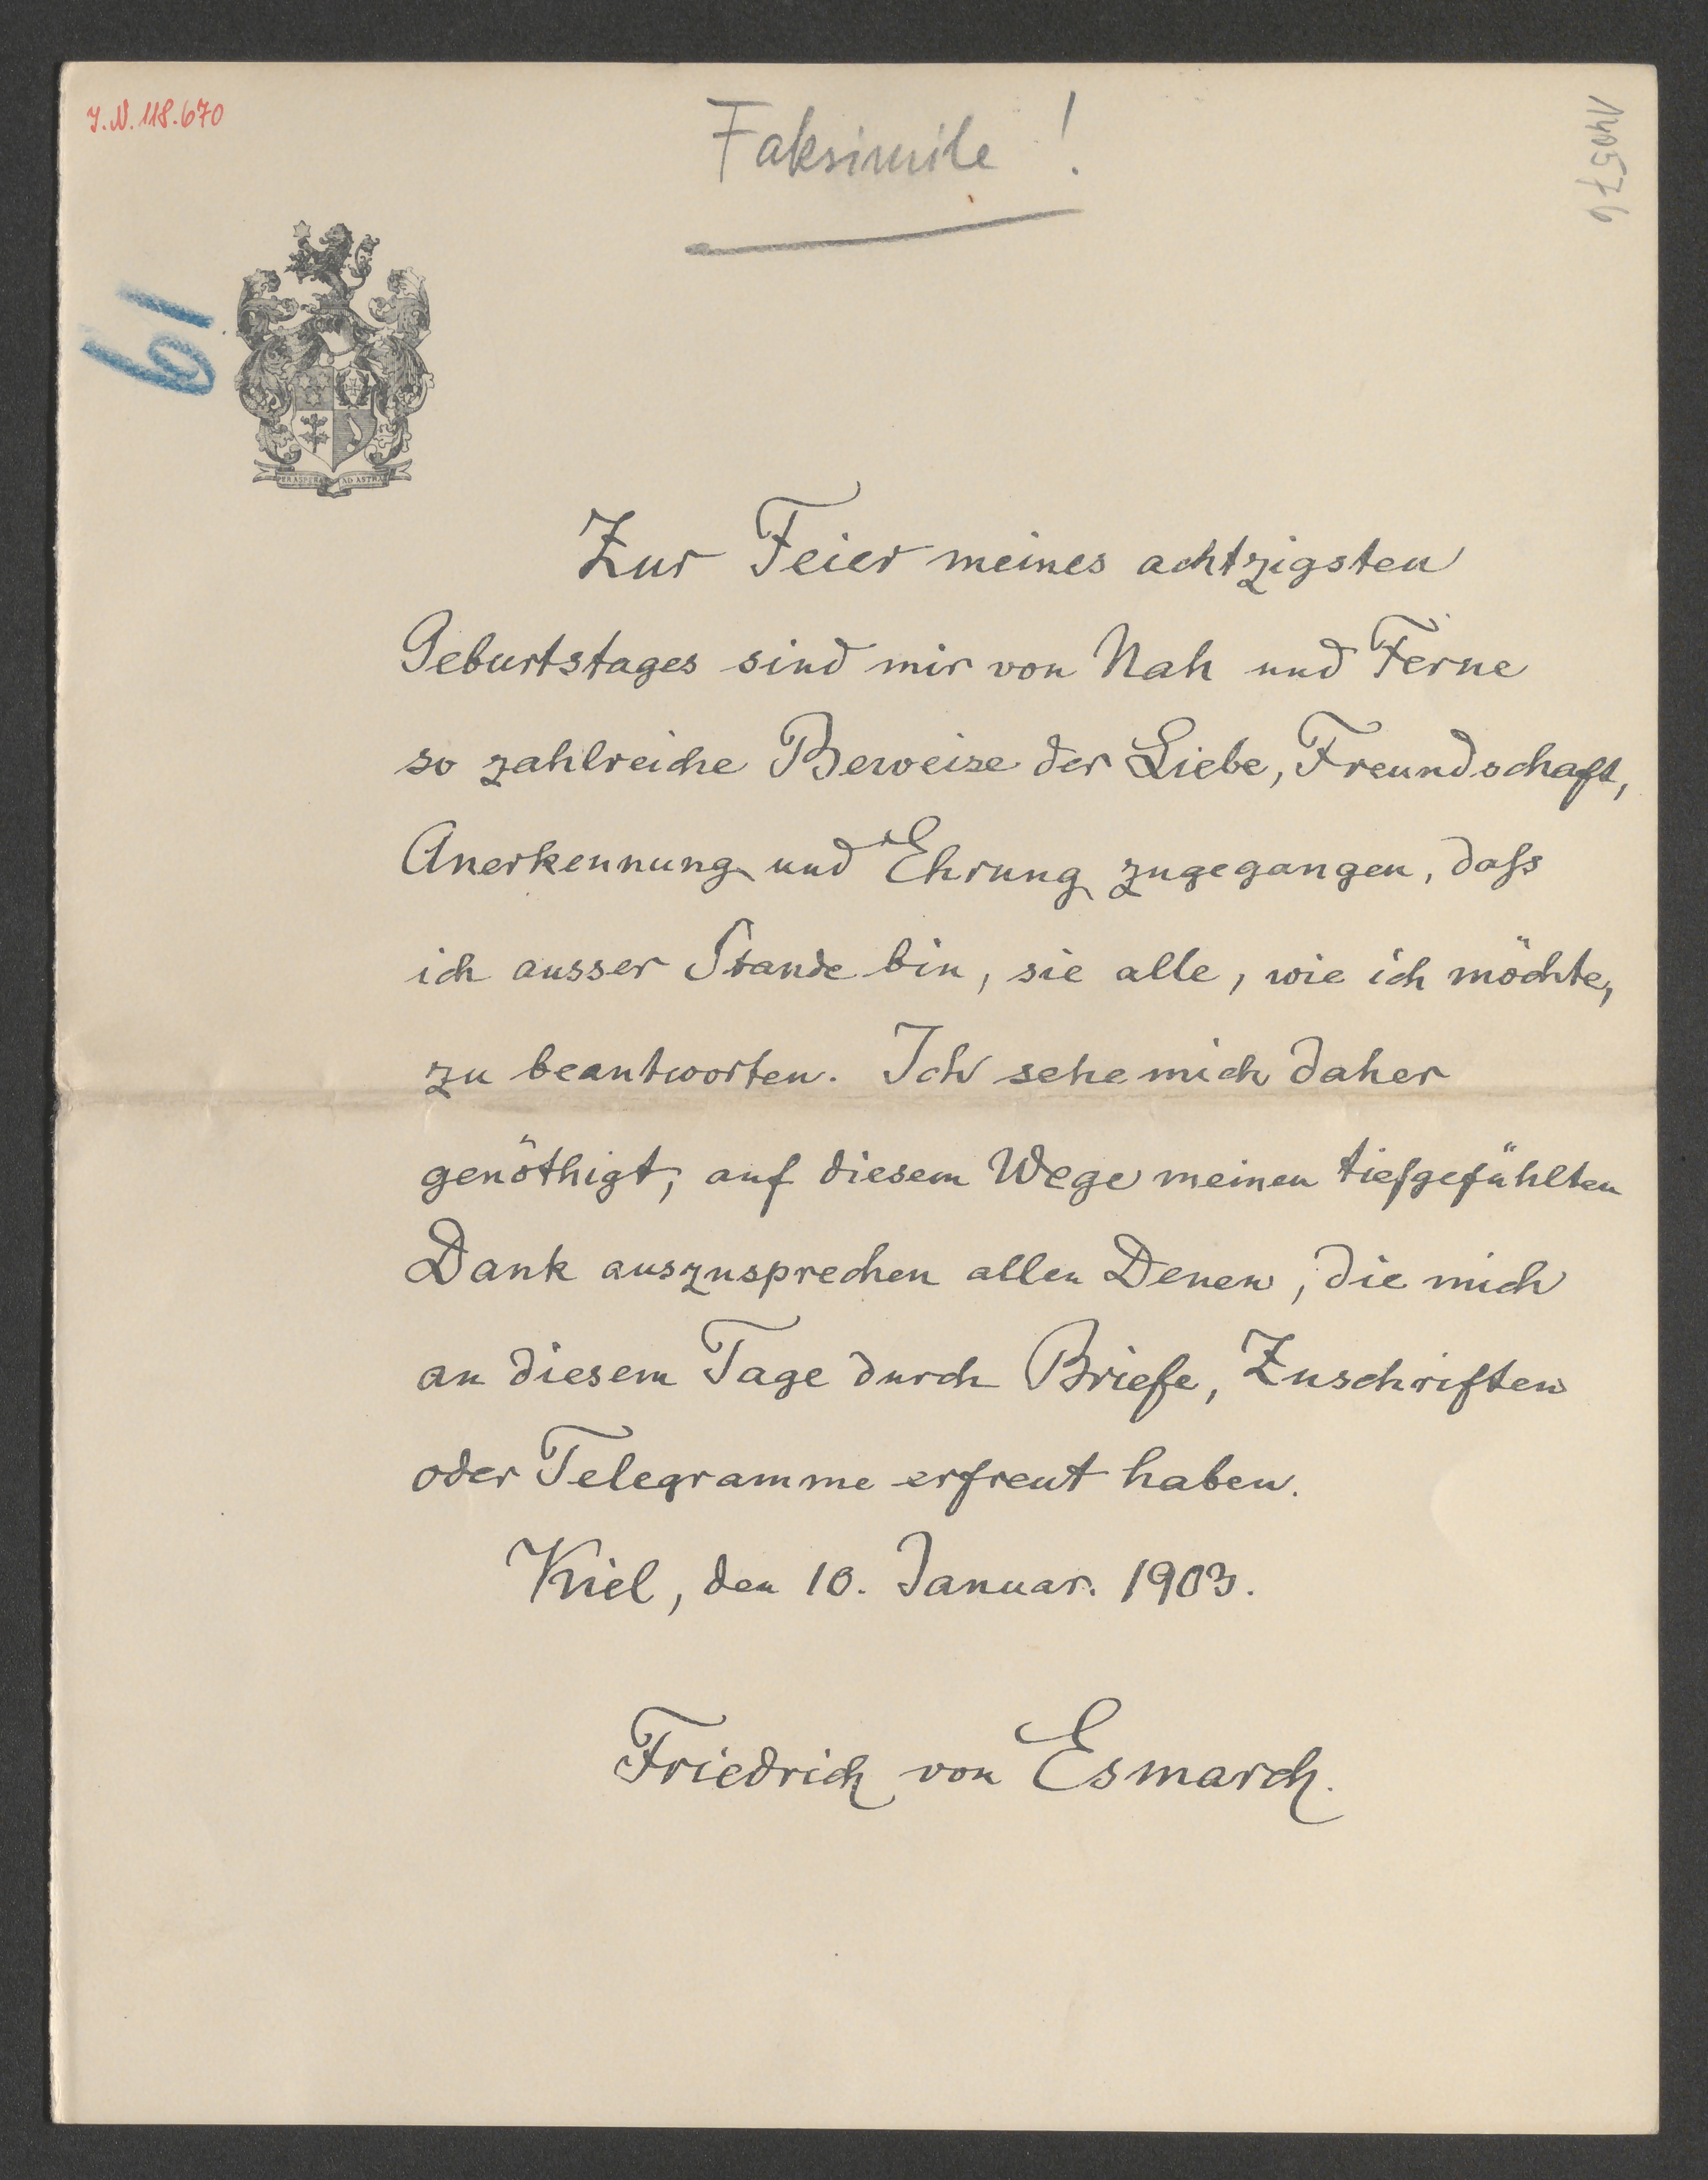 J.N. 118.670
Faksimile!
140576
19
PER ASPERA AD ASTRA
Zur Feier meines achtzigsten
Geburtstages sind mir von Nah und Ferne
so zahlreiche Beweise der Liebe, Freundschaft,
Anerkennung und Ehrung zugegangen, daſs
ich ausser Stande bin, sie alle, wie ich möchte,
zu beantworten. Ich sehe mich daher
genöthigt, auf diesem Wege meinen tiefgefühlten
Dank auszusprechen allen Denen, die mich
an diesem Tage durch Briefe, Zuschriften
oder Telegramme erfreut haben.
Kiel, den 10. Januar. 1903.
Friedrich von Esmarch.